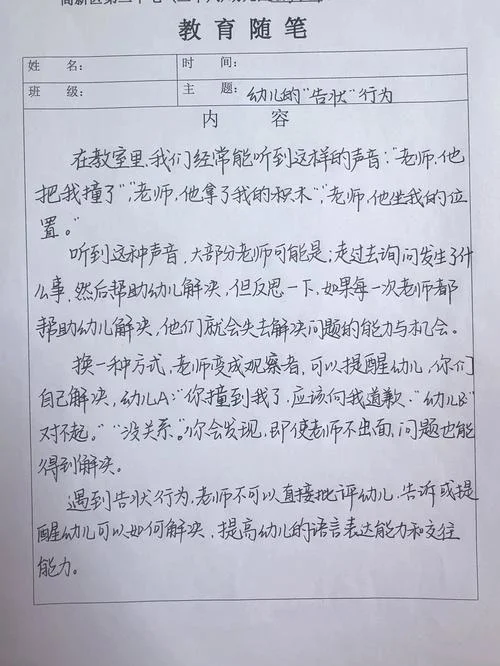 教育随笔
姓 名:
时 间:
班 级:
主 题: 幼儿的"告状"行为
内 容
在教室里,我们经常能听到这样的声音:"老师,他
把我撞了","老师,他拿了我的积木","老师,他坐我的位
置。"
听到这种声音,大部分老师可能是;走过去询问发生了什
么事,然后帮助幼儿解决,但反思一下,如果每一次老师都
帮助幼儿解决,他们就会失去解决问题的能力与机会。
换一种方式,老师变成观察者,可以提醒幼儿,你们
自己解决,幼儿A:"你撞到我了,应该向我道歉."幼儿B"
对不起。""没关系。"你会发现,即使老师不出面,问题也能
得到解决。
遇到告状行为,老师不可以直接批评幼儿,告诉或提
醒幼儿可以如何解决,提高幼儿的语言表达能力和交往
能力.